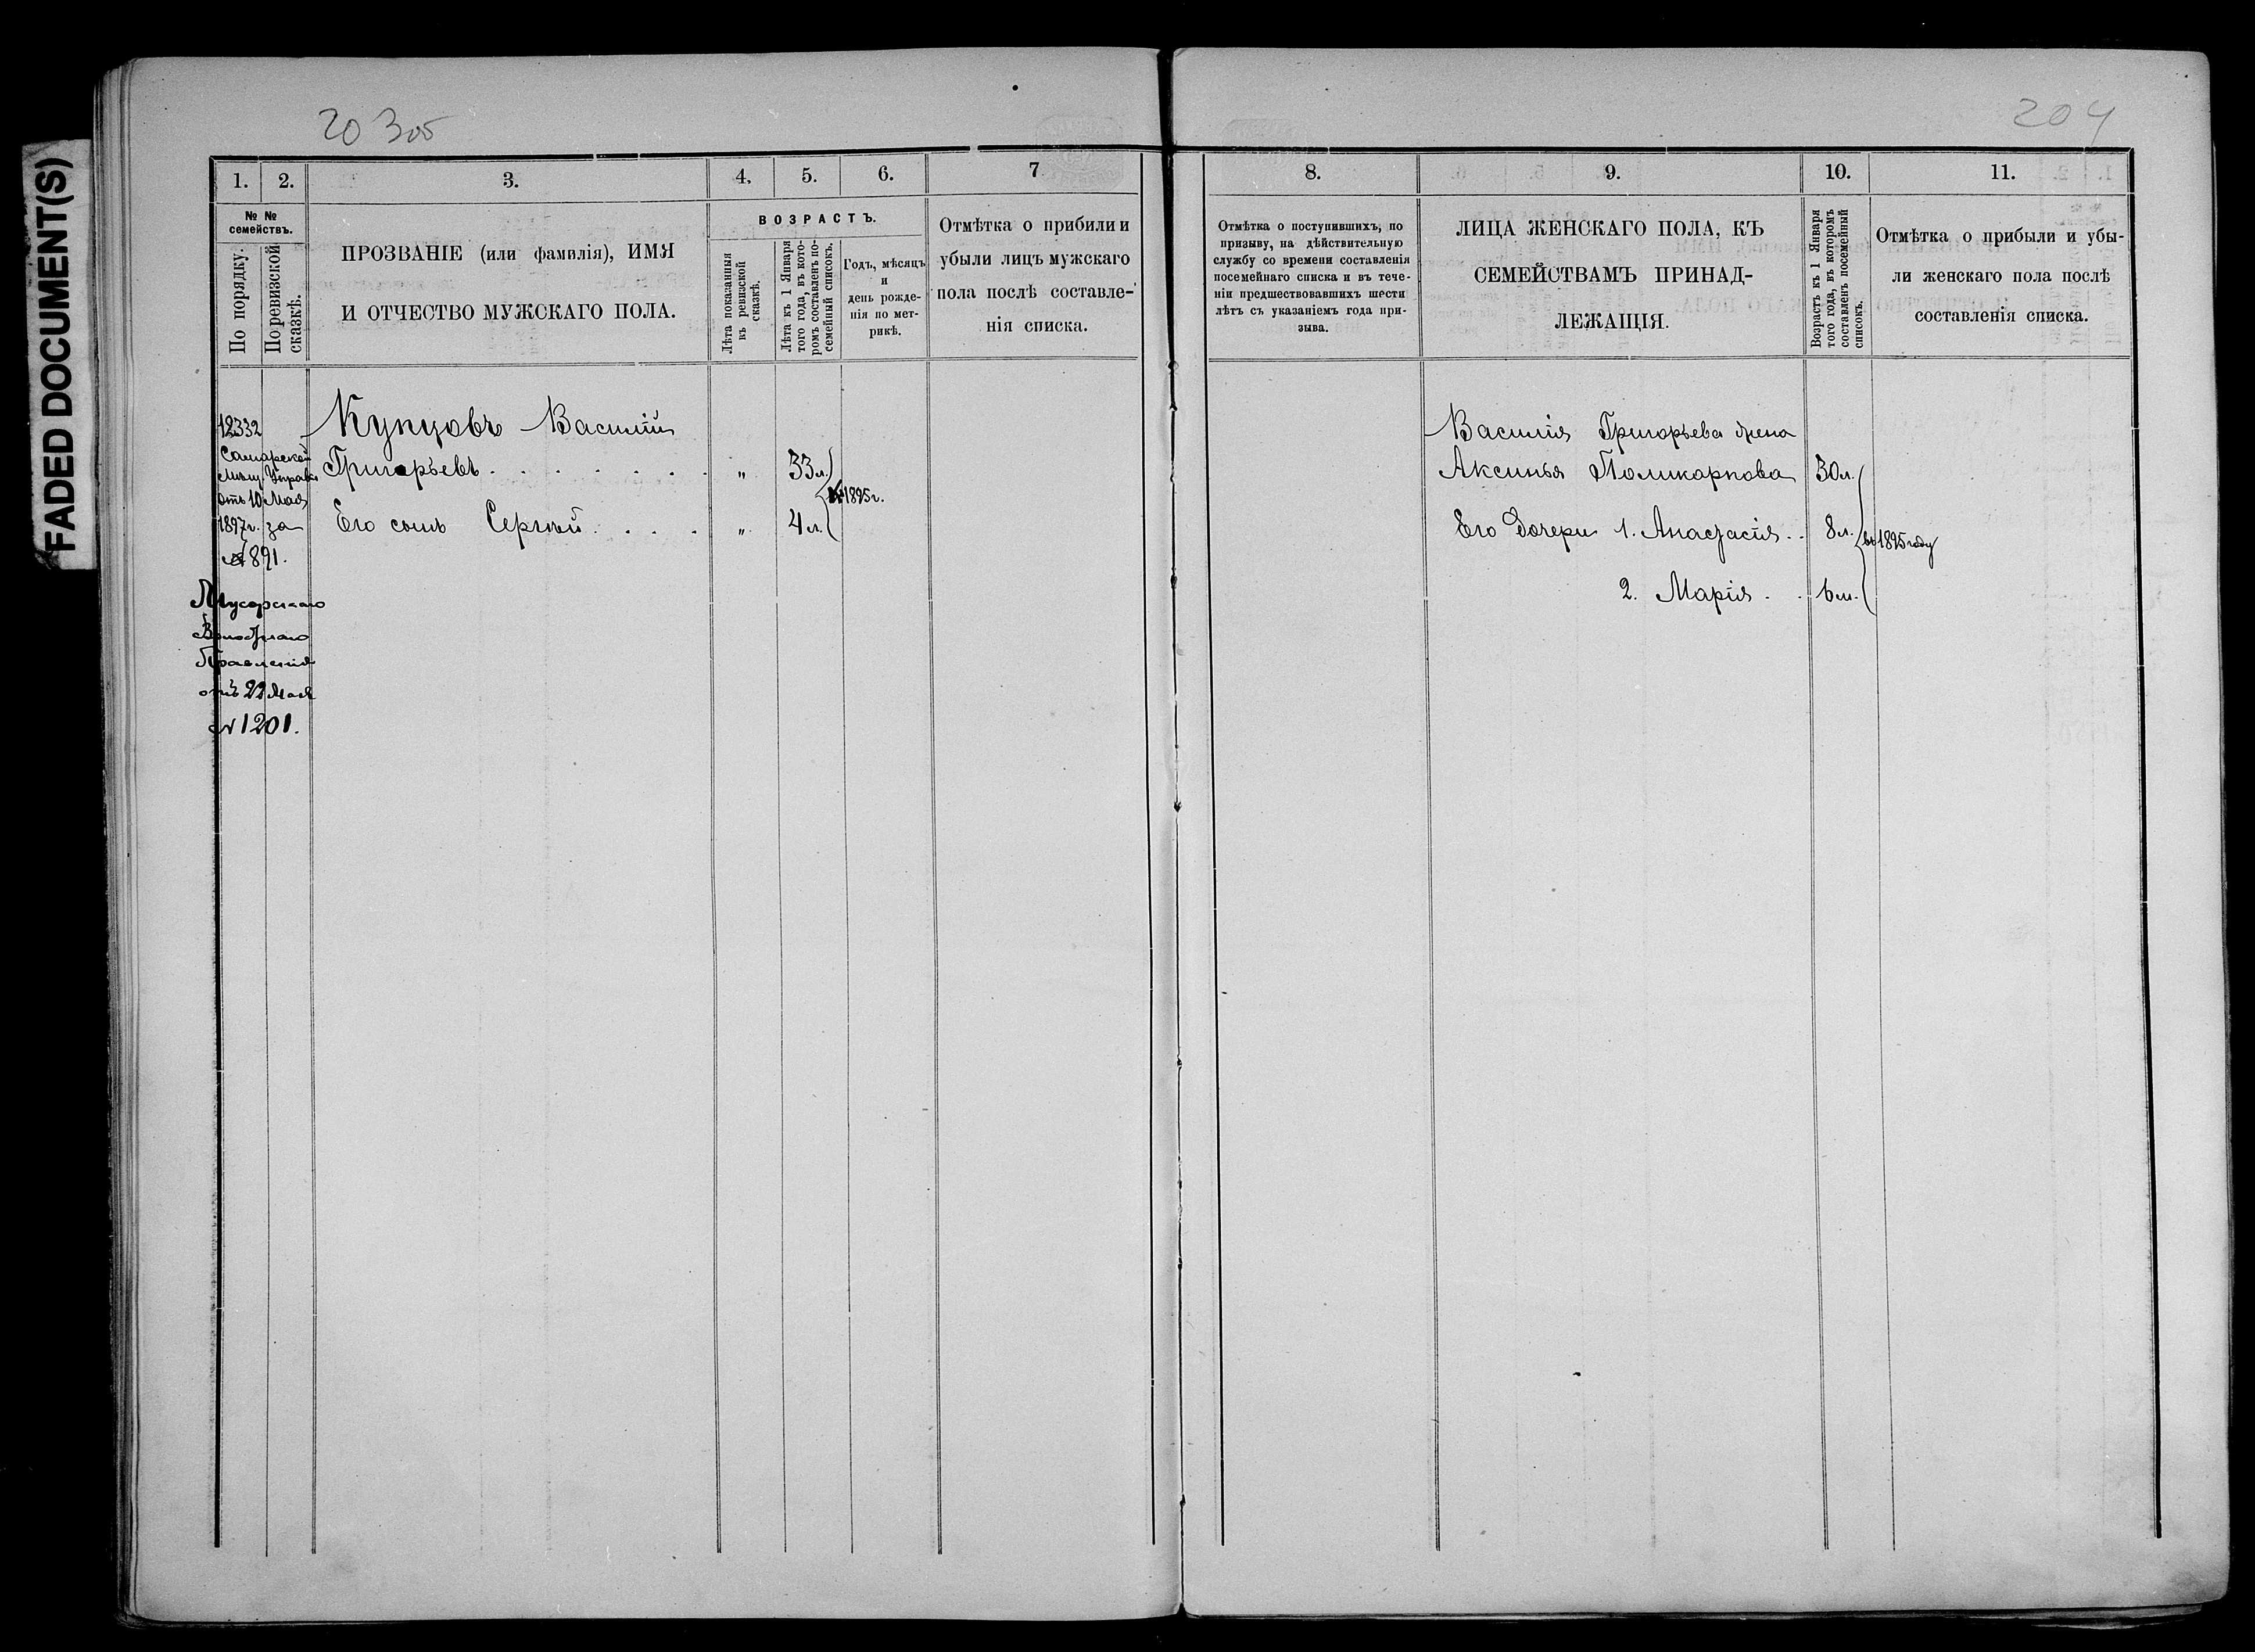 FADED DOCUMENT(S)
20 305
204
1.
2.
3.
4.
5.
6.
7
№ №
семействъ.
По порядку.
По ревизской
сказкѣ.
ПРОЗВАНІЕ (или фамилія), ИМЯ
И ОТЧЕСТВО МУЖСКАГО ПОЛА.
ВОЗРАСТЪ.
Лѣта показанныя
въ ревизской
сказкѣ.
Лѣта къ 1 Января
того года, въ кото-
ромъ составленъ по-
семейный списокъ.
Годъ, мѣсяцъ
и
день рожде-
нія по мет-
рикѣ.
Отмѣтка о прибыли и
убыли лицъ мужскаго
пола послѣ составле-
нія списка.
12332
Самарской
Мѣщ. Управы
отъ 10 Мая
1897г. за
№ 891.
Волостнаго
Правленія
отъ 22 Мая
№ 1201.
Купцовъ Василій
Григорьевъ . . . . . . . „ 33 л.
1895г.
Его сынъ Сергѣй . . . . „ 4 л.
8.
9.
10.
11.
Отмѣтка о поступившихъ, по
призыву, на дѣйствительную
службу со времени составленія
посемейнаго списка и въ тече-
ніи предшествовавшихъ шести
лѣтъ съ указаніемъ года при-
зыва.
ЛИЦА ЖЕНСКАГО ПОЛА, КЪ
СЕМЕЙСТВАМЪ ПРИНАД-
ЛЕЖАЩІЯ.
Возрастъ къ 1 Января
того года, въ которомъ
составленъ посемейный
списокъ.
Отмѣтка о прибыли и убы-
ли женскаго пола послѣ
составленія списка.
Василія Григорьева жена
Аксинья Поликарпова 30 л.
Его дочери 1. Анастасія . . 8 л.
въ 1895 году
2. Марія . . 6 л.